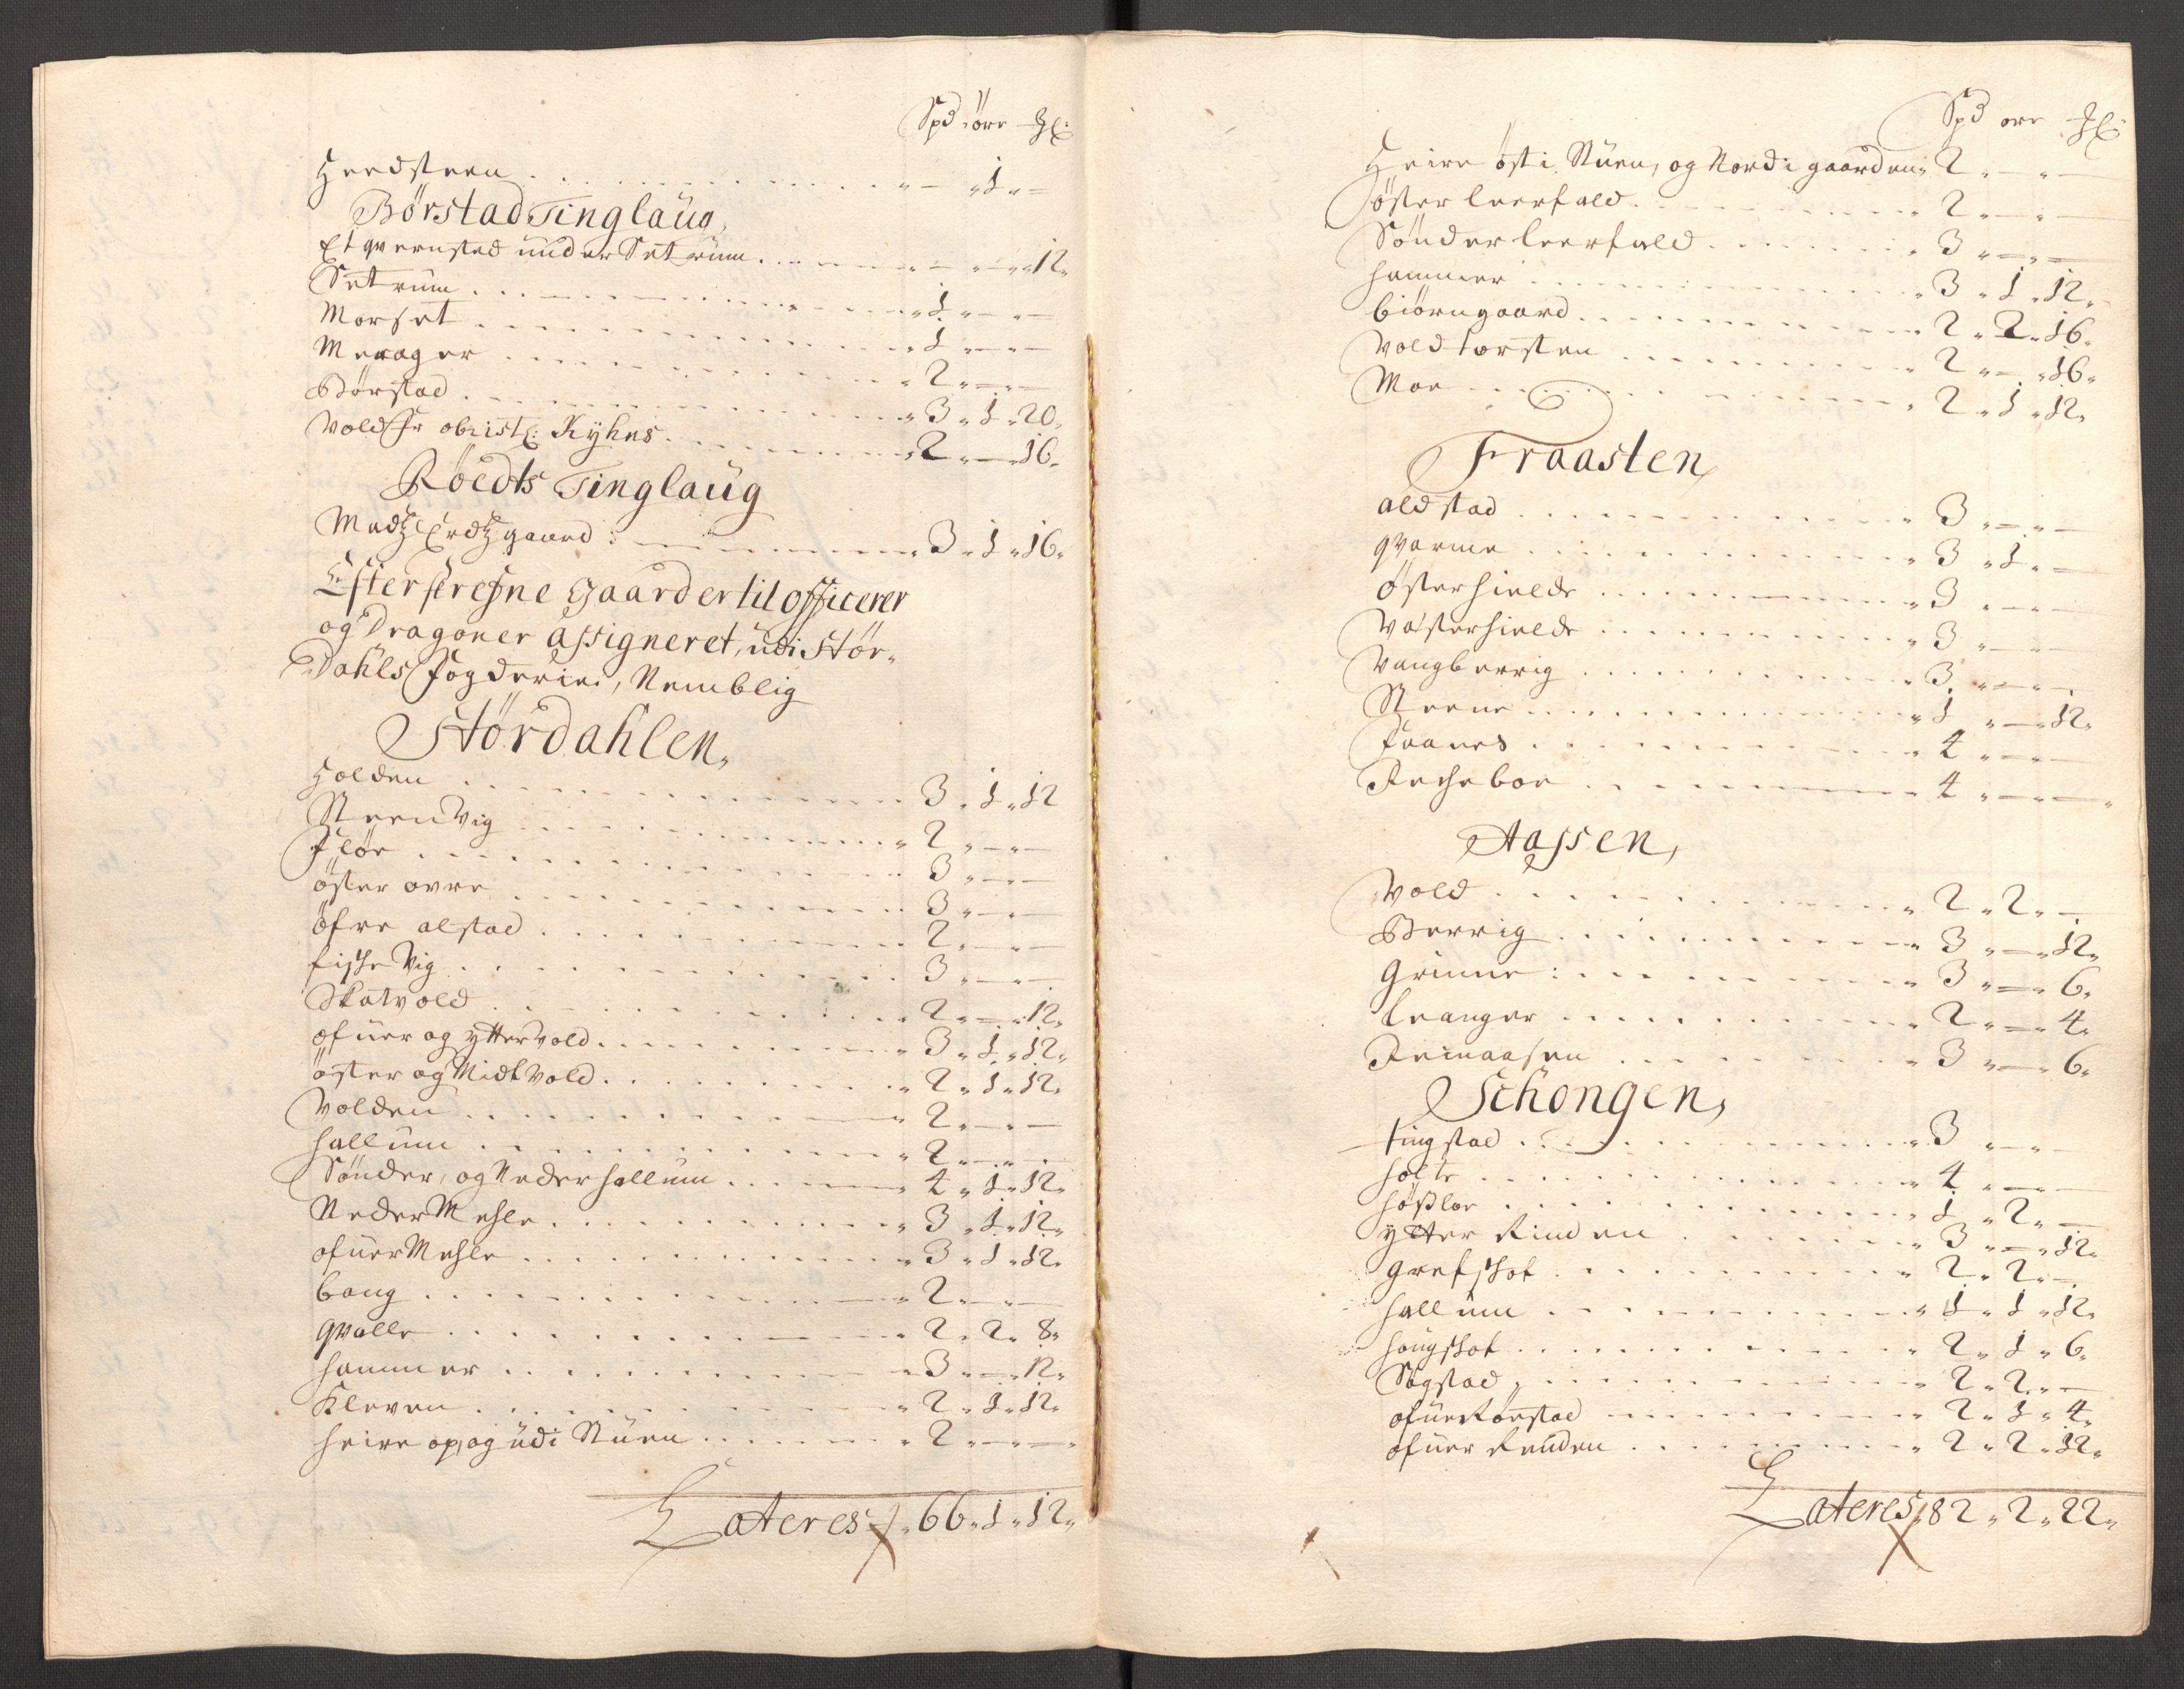 Spd öre Ж:
Heedsteen . . . - „ 1 „ -
Börstad Tinglaug,
Et qvernsted under Setrum . . . „ - „ - „ 12 „
Setrum . . . „ 1 „ - „ -
Morset . . . „ 1 „ - „ -
Merager . . . „ 2 „ - „ -
Börstad . . . „ 3 „ 1 „ 20 „
Vold Hr obristl: Kyhns . . . „ 2 „ - „ 16 „
Röedts Tinglaug
Madtz gaard : . . . „ 3 „ 1 „ 16 „
Efterskrefne Gaarder til officerer
og Dragoner assigneret, udi Stör-
Dahls Fogderie, Nemblig
Stördahlen,
Holden . . . 3 „ 1 „ 12
Steenvig . . . „ 2 „ - „ -
Flör . . . 3 „ - „ -
öster avre . . . 3 „ - „ -
öfre alstad . . . 2 „ - „ -
fischvig . . . 3 „ - „ -
Skatvold . . . „ 2 „ - „ 12 „
ofuer og yttervold . . . „ 3 „ 1 „ 12 „
öster og Midtvold . . . „ 2 „ 1 „ 12 „
Volden . . . „ 2 „ - „ -
hallum . . . „ 2 „ - „ -
Sönder, og Nederhallum . . . „ 4 „ 1 „ 12 „
Neder Mehle . . . „ 3 „ 1 „ 12 „
ofuer Mehle . . . „ 3 „ 1 „ 12 „
bang . . . „ 2 „ - „ -
qvalle . . . „ 2 „ 2 „ 8 „
hammer . . . „ 3 „ - „ 12 „
Kleven . . . „ 2 „ 1 „ 12 „
heire op, og udi Stuen . . . „ 2 „ - „ -
Lateres „ 66 „ 1 „ 12 „
Spd öre Ж:
Heire öst i Stuen, og Nord i gaarden „ 2 „ - „ -
öster leerfald . . . „ 2 „ - „ -
Sönder leerfald . . . „ 3 „ - „ -
hammer . . . „ 3 „ 1 „ 12 „
biörngaard . . . „ 2 „ 2 „ 16 „
Vold torsten . . . „ 2 „ - „ 16 „
Moe . . . „ 2 „ 1 „ 12 „
Fraasten
aldstad . . . „ 3 „ - „ -
qvarme . . . „ 3 „ 1 „ -
österhielde . . . „ 3 „ - „ -
Vesterhielde . . . „ 3 „ - „ -
Vangberrig . . . „ 3 „ - „ -
Steene . . . „ 1 „ - „ 12 „
Faanes . . . „ 4 „ - „ -
Rescheboe . . . „ 4 „ - „ -
Aassen,
Vold . . . „ 2 „ 2 „ -
Berrig . . . „ 3 „ - „ 12 „
Grinne : . . . „ 3 „ - „ 6 „
leanger . . . „ 2 „ - „ 4 „
Remaasen . . . „ 3 „ - „ 6 „
Schongen,
tingstad . . . „ 3 „ - „ -
holte . . . „ 4 „ - „ -
hößloe . . . „ 1 „ 2 „ -
ytter Rinden . . . „ 3 „ - „ 12 „
grefschot . . . „ 2 „ 2 „ -
hallum . . . „ 1 „ 1 „ 12 „
hougschot . . . „ 2 „ 1 „ 6 „
Sagstad . . . „ 2 „ 2 „ -
ofuer Rorstad . . . „ 2 „ 1 „ 4 „
ofuer Reuden . . . „ 2 „ 2 „ 12 „
Lateres „ 82 „ 2 „ 22 „